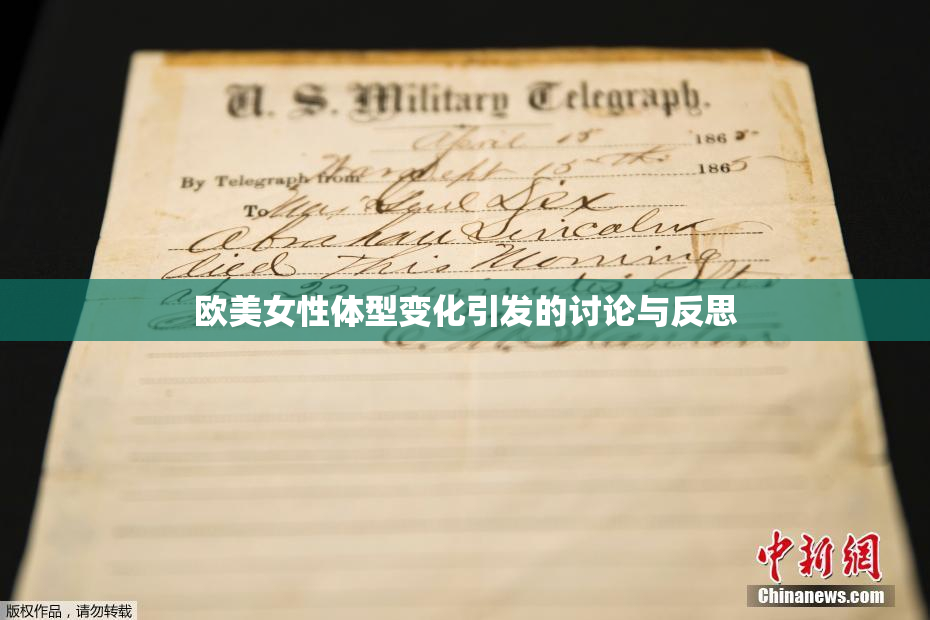 U. S. Military Telegraph.
April 15 1865
By Telegraph from War Dept 15th 1865
To Maj Genl Dix
Abraham Lincoln
died This Morning
at 22 minutes after
欧美女性体型变化引发的讨论与反思
中新網
Chinanews.com
版权作品，请勿转载